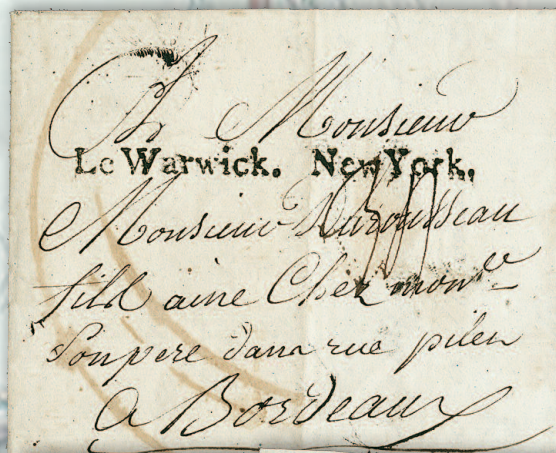 A Monsieur
Le Warwick. New York,
Monsieur Durousseau
fils ainé Chez monsr
Son pere dans rue pilen
a Bordeaux